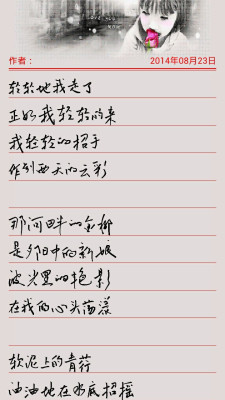 作者： 2014年08月23日
轻轻地我走了
正如我轻轻的来
我轻轻的招手
作别西天的云彩
那河畔的金柳
是夕阳中的新娘
波光里的艳影
在我的心头荡漾
软泥上的青荇
油油地在水底招摇